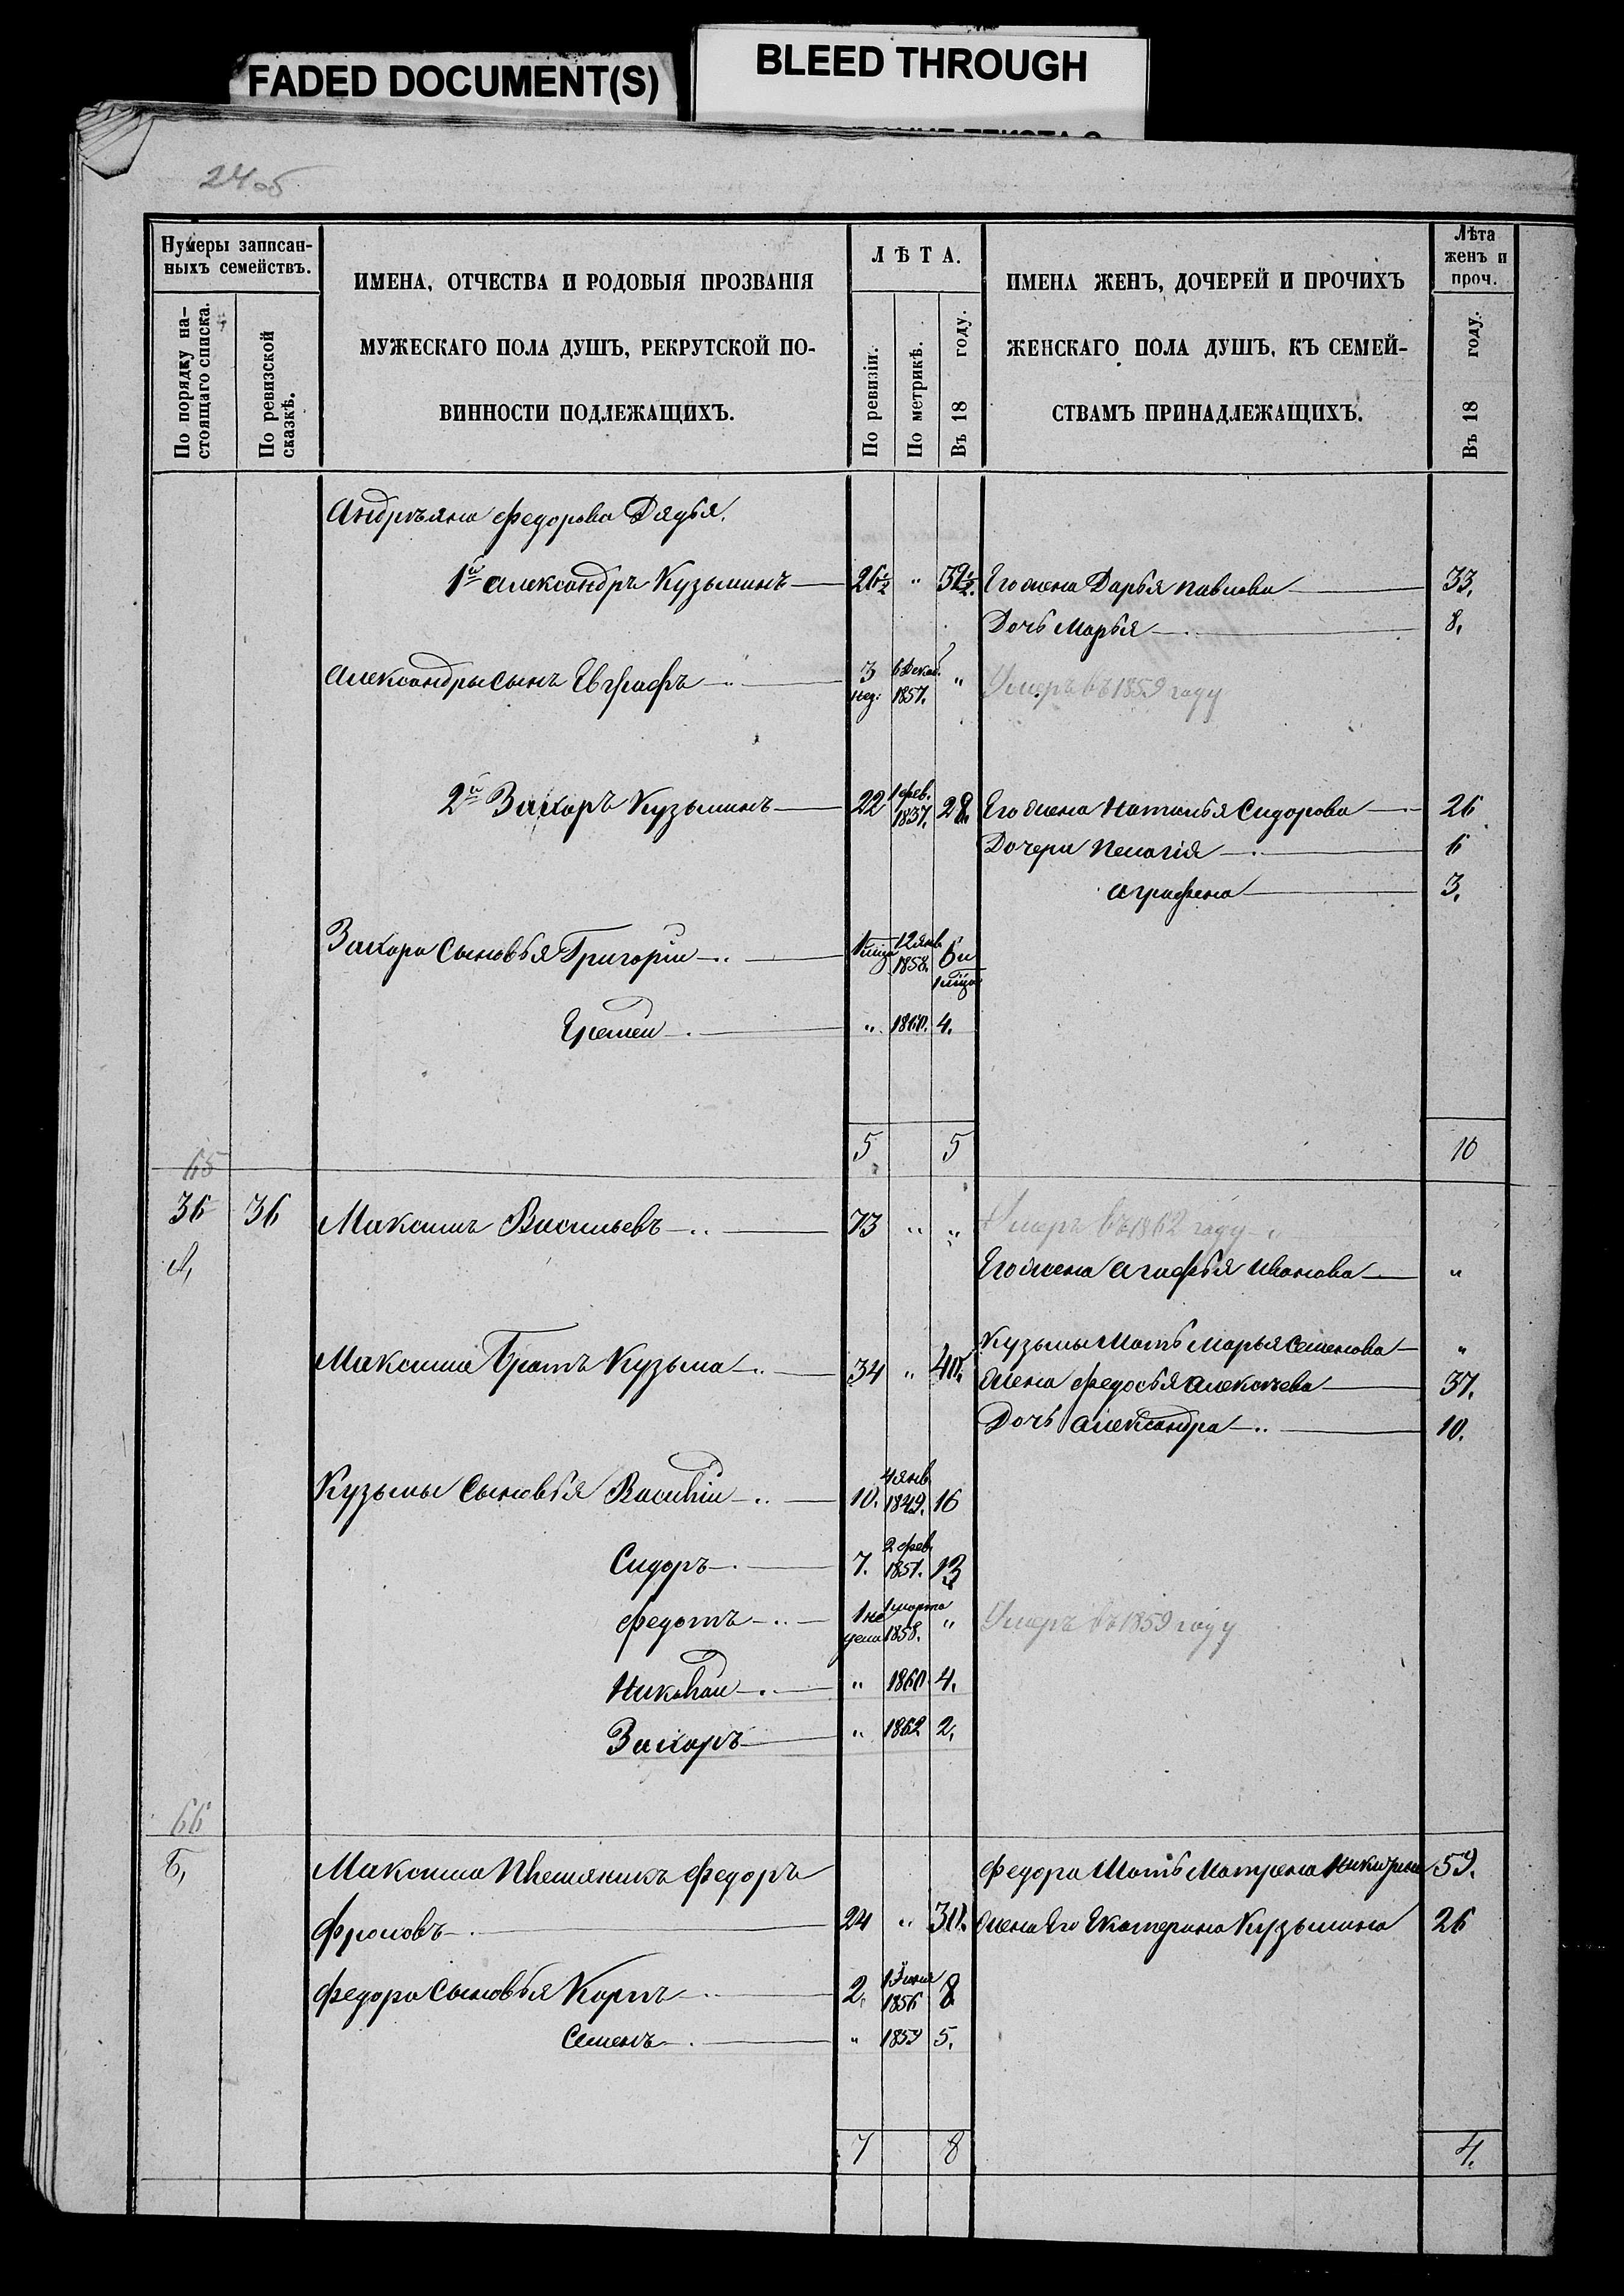 FADED DOCUMENT(S)
BLEED THROUGH
24об
Нумеры записан-
ныхъ семействъ.
По порядку на-
стоящаго списка.
По ревизской
сказкѣ.
ИМЕНА, ОТЧЕСТВА И РОДОВЫЯ ПРОЗВАНІЯ
МУЖЕСКАГО ПОЛА ДУШЪ, РЕКРУТСКОЙ ПО-
ВИННОСТИ ПОДЛЕЖАЩИХЪ.
ЛѢТА.
По ревизіи.
По метрикѣ.
Въ 18 году.
ИМЕНА ЖЕНЪ, ДОЧЕРЕЙ И ПРОЧИХЪ
ЖЕНСКАГО ПОЛА ДУШЪ, КЪ СЕМЕЙ-
СТВАМЪ ПРИНАДЛЕЖАЩИХЪ.
Лѣта
женъ и
проч.
Въ 18 году.
Андрѣяна Федорова Дядья.
1й Александръ Кузьминъ 26½ " 32½. Его жена Дарья Павлова 33.
Дочь Марья 8.
Александры сынъ Евграфъ 3 нед: 6 Декаб. 1857. " Умеръ въ 1859 году
2й Захоръ Кузьминъ 22 1 фев. 1837. 28. Его жена Наталья Сидорова 26
Дочери Пелагія 6
Аграфена 3.
Захора Сыновья Григорій 12 янв 1858. 6 и
Еремей " 1860. 4.
5 5 10
65
36 36 Максимъ Васильевъ 73 " " Умеръ въ 1862 году
А, Его жена Агафья Иванова "
Кузьмы Мать Марья Семенова "
Максима Братъ Кузьма 34 " 40. Жена Федосья Алексѣева 37.
Дочь Александра 10.
Кузьмы Сыновья Василій 10. 4 янв 1849. 16
Сидоръ 7. 2 фев. 1851. 13
Федотъ 1 не дели 1 марта 1858. " Умеръ въ 1859 году
Николай " 1860 4.
Захоръ " 1862 2,
66
Б, Максима Племяникъ Федоръ Федора Мать Матрена 59.
Фроловъ 24 " 30. Жена Его Екатерина Кузьмина 26
Федора Сыновья Карпъ 2, 1856 8
Семенъ " 1859 5.
7 8 4.